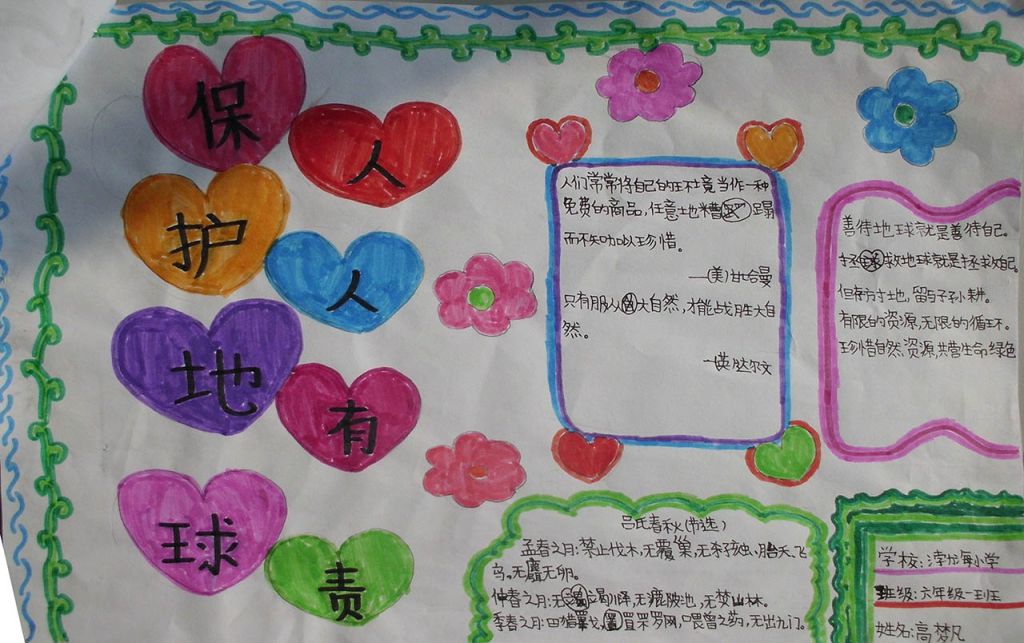 保护地球
人人有责
人们常常将自己的环境当作一种
免费的商品,任意地糟蹋
而不知加以珍惜。
—(美)甘哈曼
只有服从大自然,才能战胜大自
然。
—(英)达尔文
善待地球就是善待自己。
拯救地球就是拯救自己。
但存方寸地,留与子孙耕。
有限的资源,无限的循环。
珍惜自然资源,共营生命绿色
吕氏春秋(节选)
孟春之月:禁止伐木,无覆巢,无杀孩虫、胎夭、飞
鸟,无麛无卵。
仲春之月:无竭川泽,无漉陂池,无焚山林。
季春之月:田猎罼弋,罝罘罗网,喂兽之药,无出九门。
学校:海小学
班级:六年级一班
姓名:高梦凡